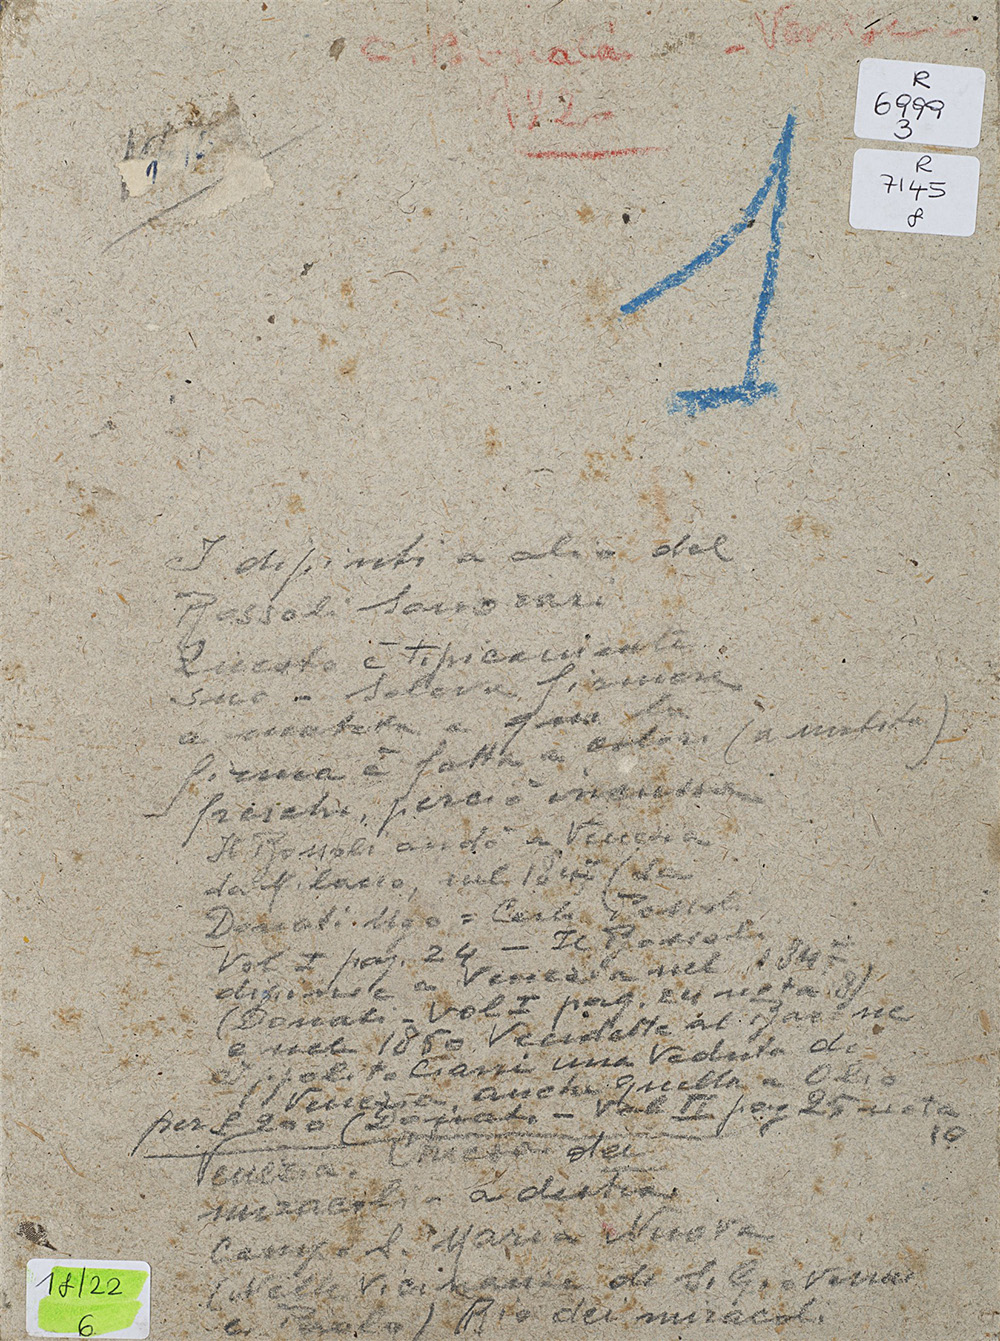 R
6999
3
R
7145
8
1
I dipinti a olio del
Bossoli sono rari
Questo è tipicamente
suo - Soleva firmare
a matita e qui la
firma è fatta a colori (a matita)
freschi, perciò
Il Bossoli andò a Venezia
da Milano, nel 1847 (
Donati. Ugo = Carlo Bossoli
Vol I pag. 24 - Il Bossoli
dipinse a Venezia nel 1847
(Donati - Vol I pag. 24 nota 8)
e nel 1850 Vendette al Barone
Ippolito Ciani una Veduta di
Venezia, anche quella a Olio
per £ 200 (Donati - Vol II pag 25 nota
10
Venezia. Chiesa dei
miracoli - a destra
Campo S. Maria Nuova
(Nelle Vicinanze di S. Giovanni
e Paolo) Rio dei miracoli
18/22
6